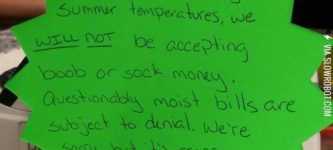 Summer temperatures, we
WILL NOT be accepting
boob or sock money.
Questionably moist bills are
subject to denial. We're
sorry but it's
VIA SLOWROBOT.COM